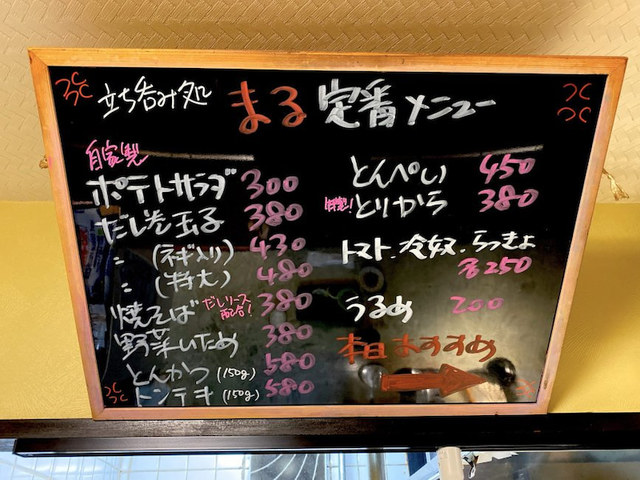 立ち呑み処 まる 定番メニュー
自家製
ポテトサラダ 300
だし巻玉子 380
〃 (ネギ入り) 430
〃 (特大) 480
焼そば だしソース 380
野菜いため 380
とんかつ (150g) 580
トンテキ (150g) 580
とんぺい 450
とりから 380
トマト・冷奴・らっきょ
各250
うるめ 200
本日おすすめ